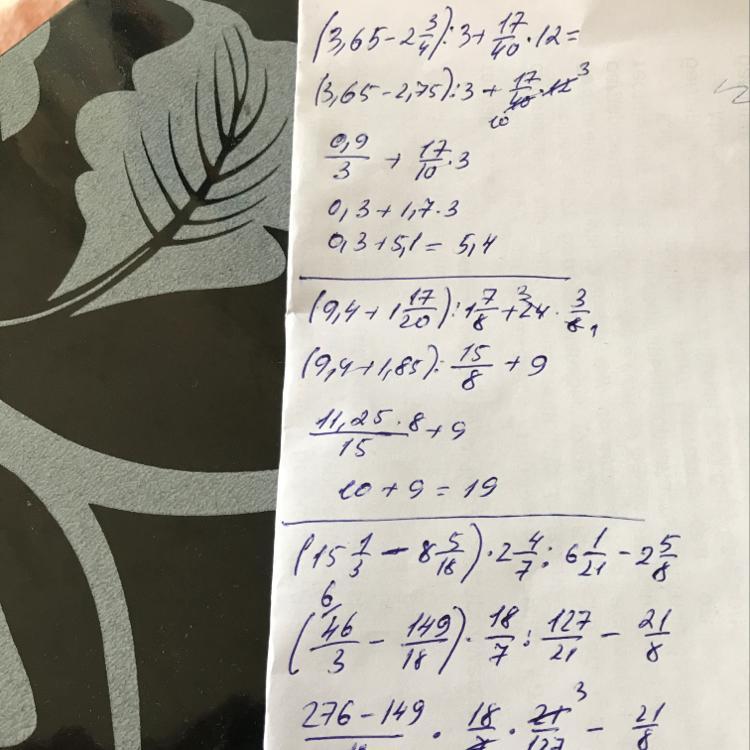 (3,65 - 2 3/4) : 3 + 17/40 · 12 =
(3,65 - 2,75) : 3 + 17/40 · 12 3
10
0,9/3 + 17/10 · 3
0,3 + 1,7 · 3
0,3 + 5,1 = 5,4
(9,4 + 1 17/20) : 1 7/8 + 24 3 · 3/8 1
(9,4 + 1,85) : 15/8 + 9
11,25 · 8/15 + 9
10 + 9 = 19
(15 1/3 - 8 5/18) · 2 4/7 : 6 1/21 - 2 5/8
6
(46/3 - 149/18) · 18/7 : 127/21 - 21/8
276 - 149/18 · 18/7 · 21/127 3 - 21/8